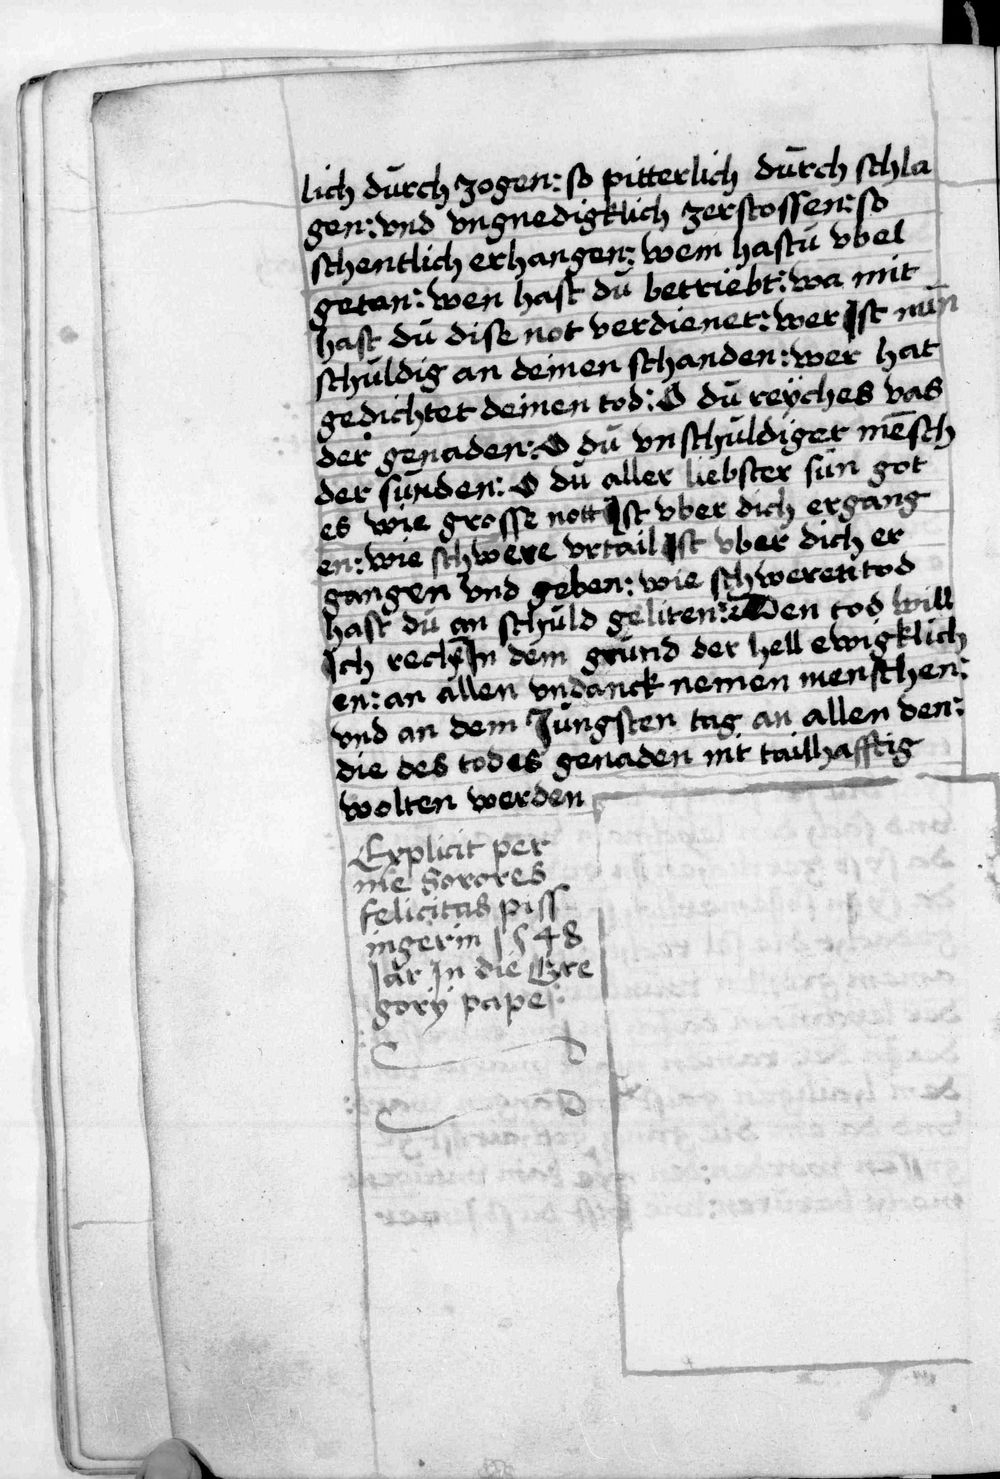 lich dŭrch zogen: so pitterlich dŭrch schla
gen: vnd vngnedigklich zerstossen: so
schentlich erhangen: wem hastŭ vbel
getan: wen hast dŭ betriebt: wa mit
hast dŭ dise not verdienet: wer Ist nŭn
schŭldig an deinen schanden: wer hat
gedichtet deinen tod: O dŭ reÿches vas
der genaden: O dŭ vnschŭldiger mēsch
der sŭnden: O dŭ aller liebster sŭn got
es wie grosse nott Ist vber dich ergang
en: wie schwere vrtail Ist vber dich er
gangen vnd geben: wie schweren tod
hast dŭ an schŭld geliten: Den tod will
Ich rechē In dem grŭnd der hell ewigklich
en: an allen vndanck nemen menschen:
vnd an dem Jŭngsten tag an allen den:
die des todes genaden nit tailhafftig
wolten werden
Explicit per
me Sorores
felicitas piss
ingerin 1548
Jar In die Gre
gorÿ pape